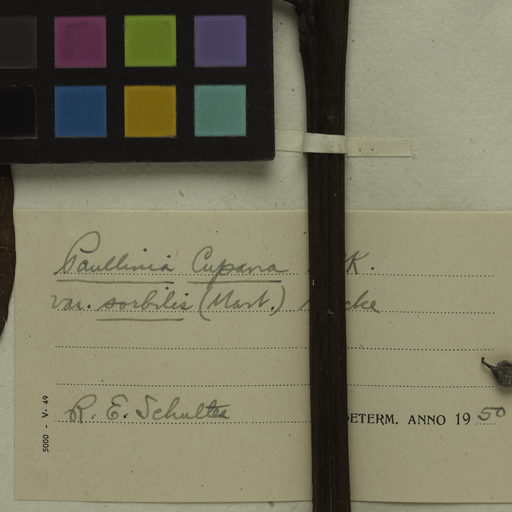 Paullinia Cupana K.
var. sorbilis (Mart.) cke
R. E. Schultes
DETERM. ANNO 1950
5000 - V. 49